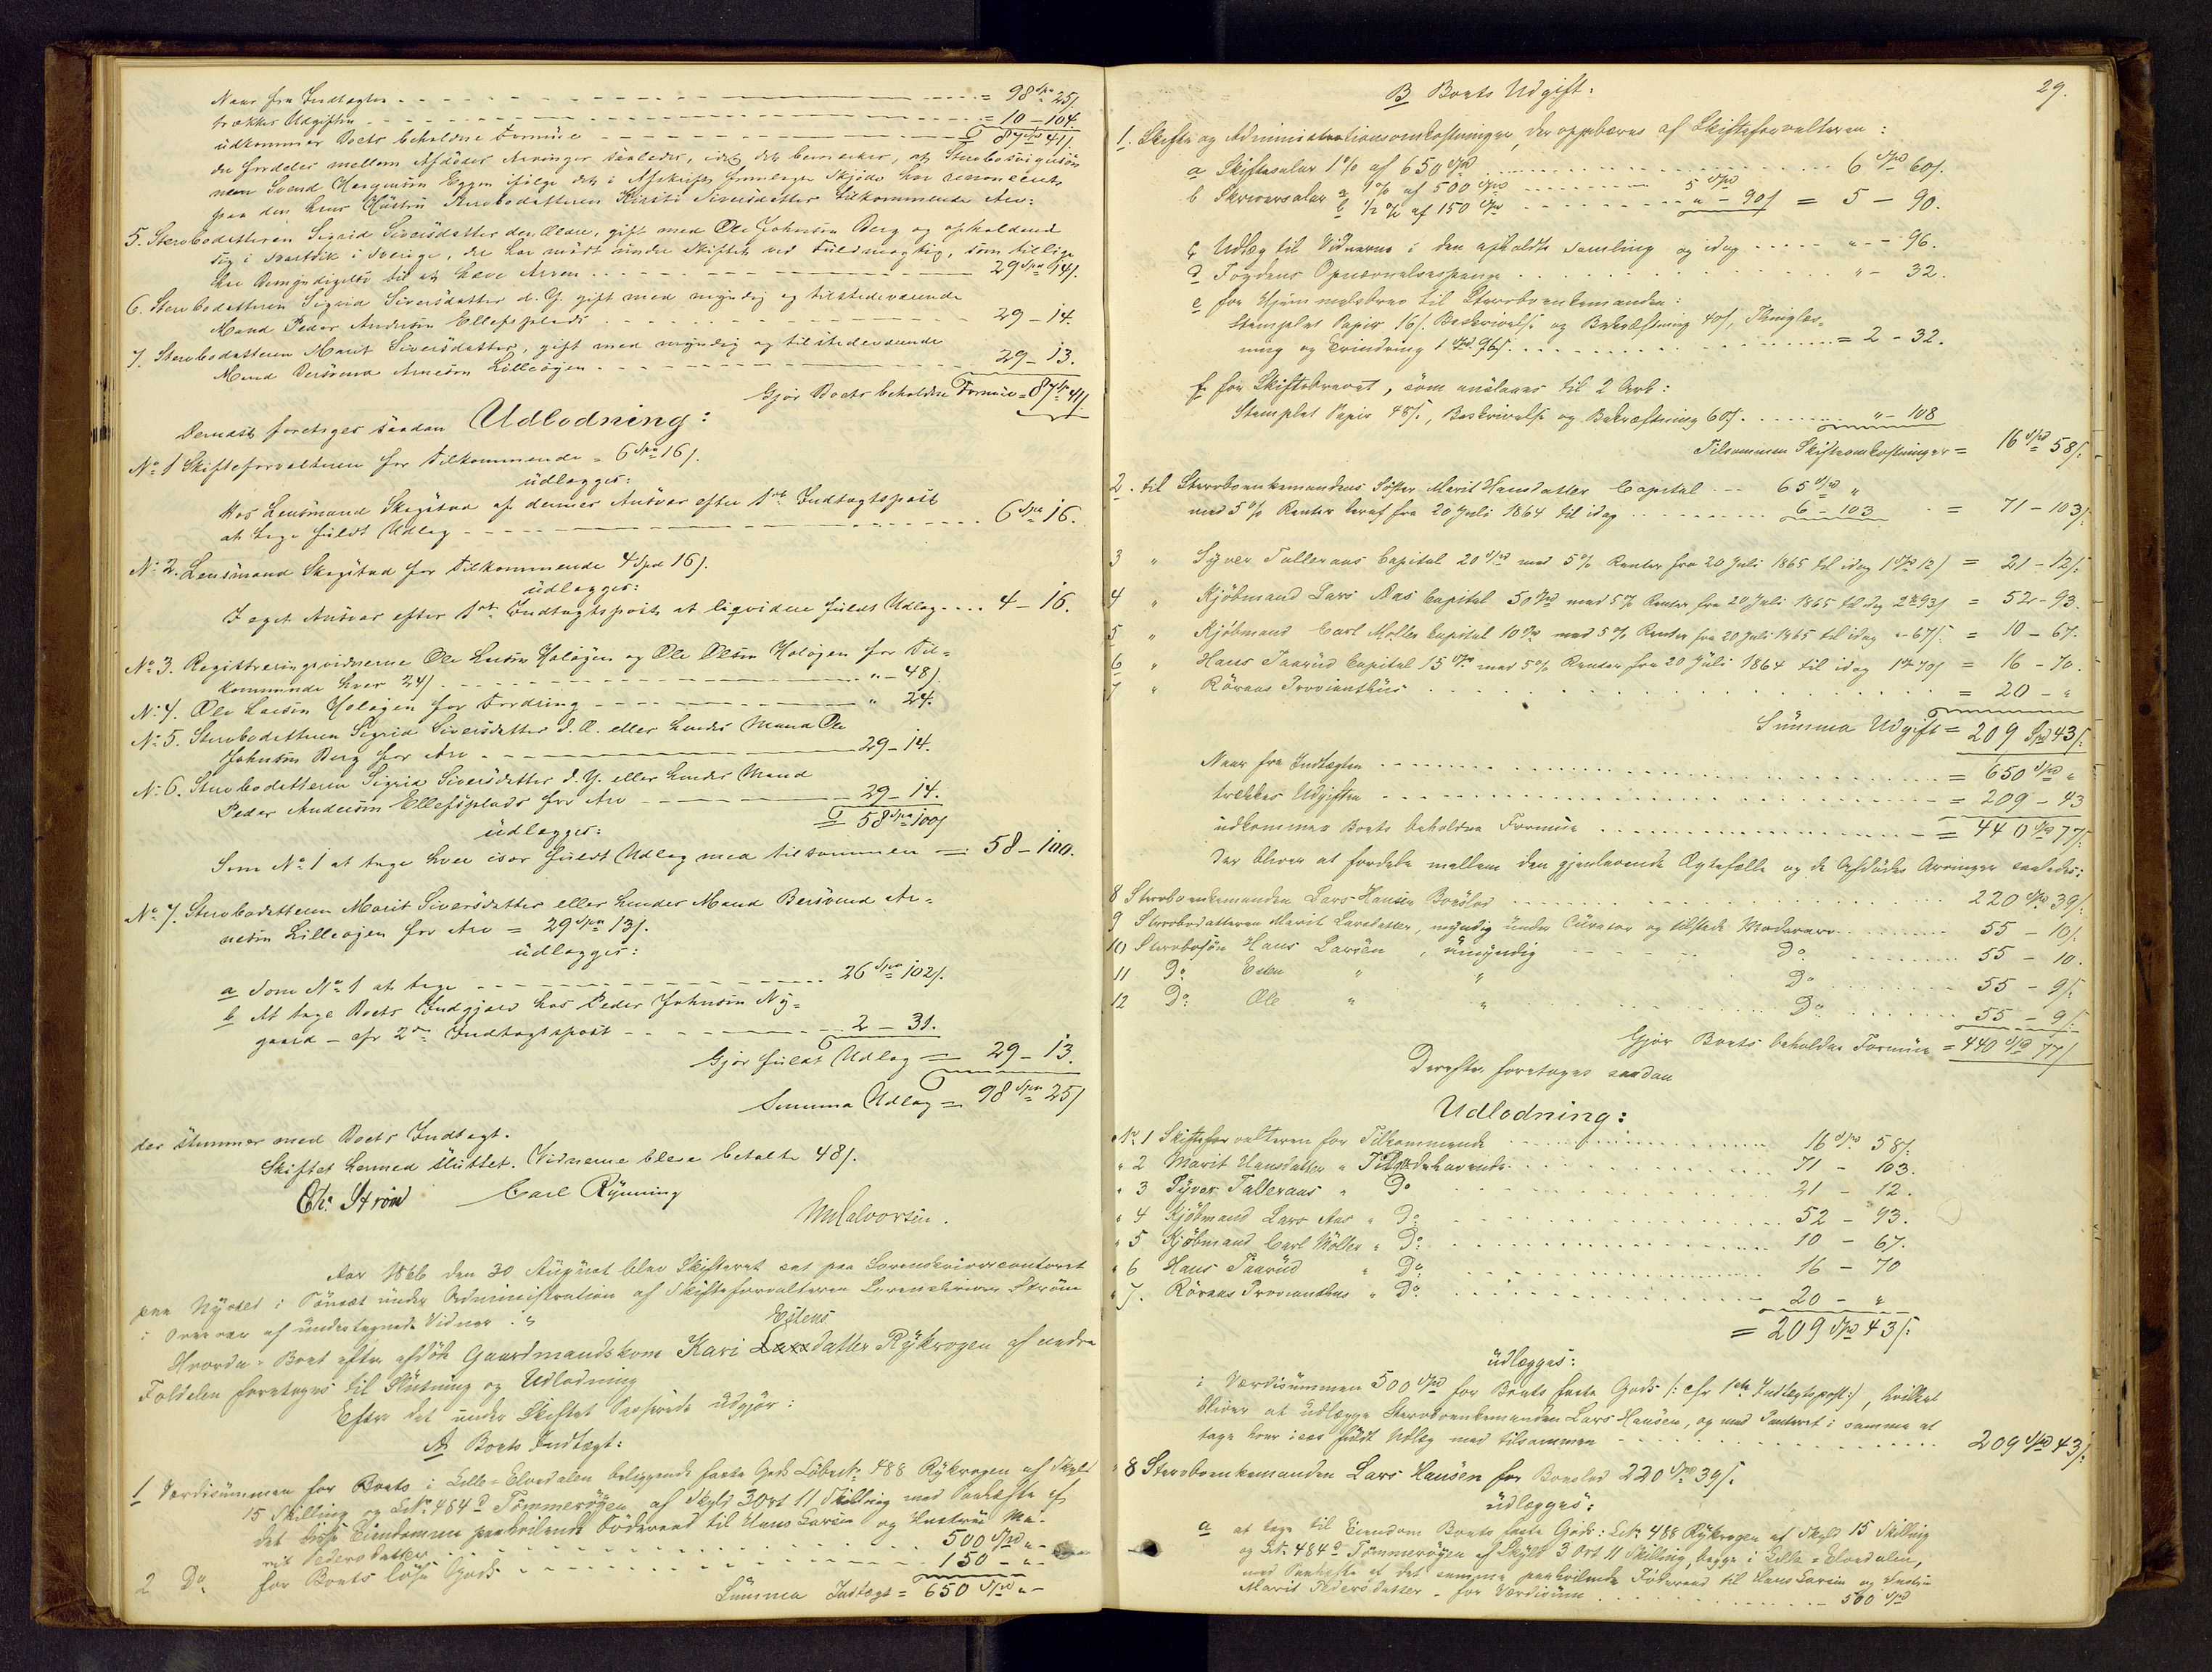 Naar fra Indtægten = 98 Spd 25 ſ.
trækkes Udgiften = 10 – 104.
udkommer Boets beholdne Formue = 87 Spd 41 ſ.
der fordeles mellem Afdødes Arvinger saaledes, idet det bemærkes, at Stervbosvigersøn-
nen Svend Eggen ifølge det i Afskrift fremlagte Skjøde har renonceret
paa den hans Hustru Stervbodatteren Kirsti Siversdatter tilkommende Arv:
5. Stervbodatteren Sigrid Siversdatter den Ældre, gift med Ole Johnsen Berg og opholdende
sig i Svartvik i Sverige, der har mødt under Skiftet ved Fuldmægtig, som tillige
har Bemyndigelse til at hæve Arven 29 Spd 14 ſ.
6. Stervbodatteren Sigrid Siversdatter d. Y. gift med myndig og tilstedeværende
Mand Peder Andersen Ellefsplads 29 – 14.
7. Stervbodatteren Marit Siversdatter, gift med myndig og tilstedeværende
Mand Bersvend Arnesen Lilleøgen 29 – 13.
Gjør Boets beholdne Formue = 87 Spd 41 ſ.
Dernæst foretages saadan Udlodning:
No 1 Skifteforvalteren for Tilkommende = 6 Spd 16 ſ.
udlægges:
Hos Lensmand Skogstad af dennes Ansvar efter 1ste Indtægtspost
at tage fuldt Udlæg 6 Spd 16.
No 2. Lensmand Skogstad for Tilkommende 4 Spd 16 ſ.
udlægges:
I eget Ansvar efter 1ste Indtægtspost at liqvidere fuldt Udlæg 4 – 16.
No 3. Registreringsvidnerne Ole Larsen Holøgen og Ole Olsen Holøgen for Til-
kommende hver 24 ſ " – 48 ſ.
No 4. Ole Larsen Holøgen for Fordring " 24.
No 5. Stervbodatteren Sigrid Siversdatter d. Æ. eller hendes Mand Ole
Johnsen Berg for Arv 29 – 14.
No 6. Stervbodatteren Sigrid Siversdatter d. Y. eller hendes Mand
Peder Andersen Ellefsplads for Arv 29 – 14.
= 58 Spd 100 ſ
udlægges:
Som No 1 at tage hver især fuldt Udlæg med tilsammen = 58 – 100.
No 7. Stervbodatteren Marit Siversdatter eller hendes Mand Bersvend Ar-
nesen Lilleøgen for Arv = 29 Spd 13 ſ.
udlægges:
a Som No 1 at tage 26 Spd 102 ſ.
b At tage Boets Indgjæld hos Peder Johnsen Ny-
gaard – cfr 2den Indtægtspost 2 – 31.
Gjør fuldt Udlæg = 29 – 13.
Summa Udlæg = 98 Spd 25 ſ
der stemmer med Boets Indtægt.
Skiftet hermed sluttet. Vidnerne bleve betalte 48 ſ.
Chr. Strøm Carl Rynning
M Halvorsen.
Aar 1866 den 30 August blev Skifteret sat paa Sorenskrivercontoret
paa Nysted i Tønset under Administration af Skifteforvalteren Sorenskriver Strøm
i Overvær af undertegnede Vidner. "
Estens
Hvorda: Boet efter afdøde Gaardmandskone Kari Larsdatter Rykrogen af nedre
Foldalen foretoges til Slutning og Udlodning
Efter det under Skiftet Passerede udgjør:
A Boets Indtægt:
1 Værdisummen for Boets i Lille-Elvedalen beliggende faste Gods Løbe No. 488 Rykrogen af Skyld
15 Skilling og L. No. 484 d Tømmerøgen af Skyld 3 Ort 11 Skilling med Paahefte af
det disse Eiendomme paahvilende Føderaad til Hans Larsen og Hustru Ma-
rit Pedersdatter 500 Spd " –
2 Do for Boets løse Gods 150 – " –
Summa Indtægt = 650 Spd " –
29.
B Boets Udgift:
1. Skifte og Administrationsomkostninger, der oppebæres af Skifteforvalteren:
a Skiftesalær 1 % af 650 Spd 6 Spd 60 ſ.
b Skriversalær a 1 % af 500 Spd 5 Spd
b ½ % af 150 Spd " – 90 ſ = 5 – 90.
c Udlæg til Vidnerne i den afholdte Samling og idag " – 96.
d Fogdens Opnævnelsespenge " – 32.
e for Hjemmelsbrev til Stervboenkemanden:
Stemplet Papir 16 ſ. Beskrivelse og Bekræftning 40 ſ, Thinglæs-
ning og Erindring 1 Spd 96 ſ = 2 – 32.
f for Skiftebrevet, som anslaaes til 2 Ark:
Stemplet Papir 48 ſ., Beskrivelse og Bekræftning 60 ſ. " – 108
Tilsammen Skifteomkostninger = 16 Spd 58 ſ.
2. til Stervboenkemandens Søster Marit Hansdatter Capital 65 Spd "
med 5 % Renter heraf fra 20 Juli 1864 til idag 6 – 103 = 71 – 103 ſ.
3 " Syver Talleraas Capital 20 Spd med 5 % Renter fra 20 Juli 1865 til idag 1 Spd 12 ſ = 21 – 12 ſ.
4 " Kjøbmand Lars Aas Capital 50 Spd med 5 % Renter fra 20 Juli 1865 til idag 2 Spd 93 ſ = 52 – 93.
5 " Kjøbmand Carl Møller Capital 10 Spd med 5 % Renter fra 20 Juli 1865 til idag " – 67 ſ. = 10 – 67.
6 " Hans Paarud Capital 15 Spd med 5 % Renter fra 20 Juli 1864 til idag 1 Spd 70 ſ = 16 – 70.
7 " Røraas Provianthus = 20 – "
Summa Udgift = 209 Spd 43 ſ.
Naar fra Indtægten = 650 Spd "
trækkes Udgiften = 209 – 43
udkommer Boets beholdne Formue = 440 Spd 77 ſ.
der bliver at fordele mellem den gjenlevende Ægtefælle og de Afdødes Arvinger saaledes:
8 Stervboenkemanden Lars Hansen Boeslod 220 Spd 39 ſ.
9 Stervbodatteren Marit Larsdatter, myndig under Curator og tilstede Mødrearv 55 – 10 ſ.
10 Stervbosøn Hans Larsen, umyndig Do 55 – 10.
11 Do Esten " " Do 55 – 9 ſ.
12 Do Ole " " Do 55 – 9 ſ.
Gjør Boets beholdne Formue = 440 Spd 77 ſ
Derefter foretoges saadan
Udlodning:
No 1 Skifteforvalteren for Tilkommende 16 Spd 58 ſ.
" 2 Marit Hansdatter " Tilgodehavende 71 – 103.
" 3 Syver Talleraas " Do 21 – 12.
" 4 Kjøbmand Lars Aas " Do 52 – 93.
" 5 Kjøbmand Carl Møller " Do 10 – 67.
" 6 Hans Paarud " Do 16 – 70
" 7. Røraas Provianthus " Do 20 – "
= 209 Spd 43 ſ.
udlægges:
i Værdisummen 500 Spd for Boets faste Gods /: cfr 1ste Indtægtspost :/, hvilket
bliver at udlægge Stervboenkemanden Lars Hansen, og med Panteret i samme at
tage hver især fuldt Udlæg med tilsammen 209 Spd 43 ſ.
" 8 Stervboenkemanden Lars Hansen for Boeslod 220 Spd 39 ſ.
udlægges:
a at tage til Eiendom Boets faste Gods: L. No. 488 Rykrogen af Skyld 15 Skilling
og L. No. 484 d Tømmerøgen af Skyld 3 Ort 11 Skilling, begge i Lille-Elvedalen,
med Paahefte af det samme paahvilende Føderaad til Hans Larsen og Hustru
Marit Pedersdatter – for Værdisum 500 Spd